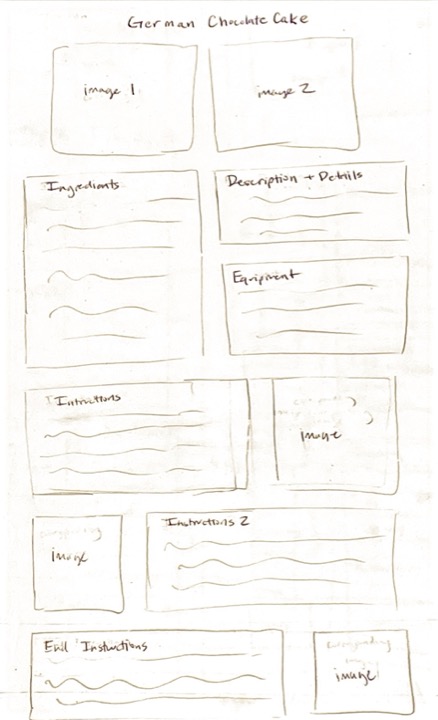 German Chocolate Cake
image 1
image 2
Ingredients
Description + Details
Equipment
Intructions
image
image
Instructions 2
End Instructions
image